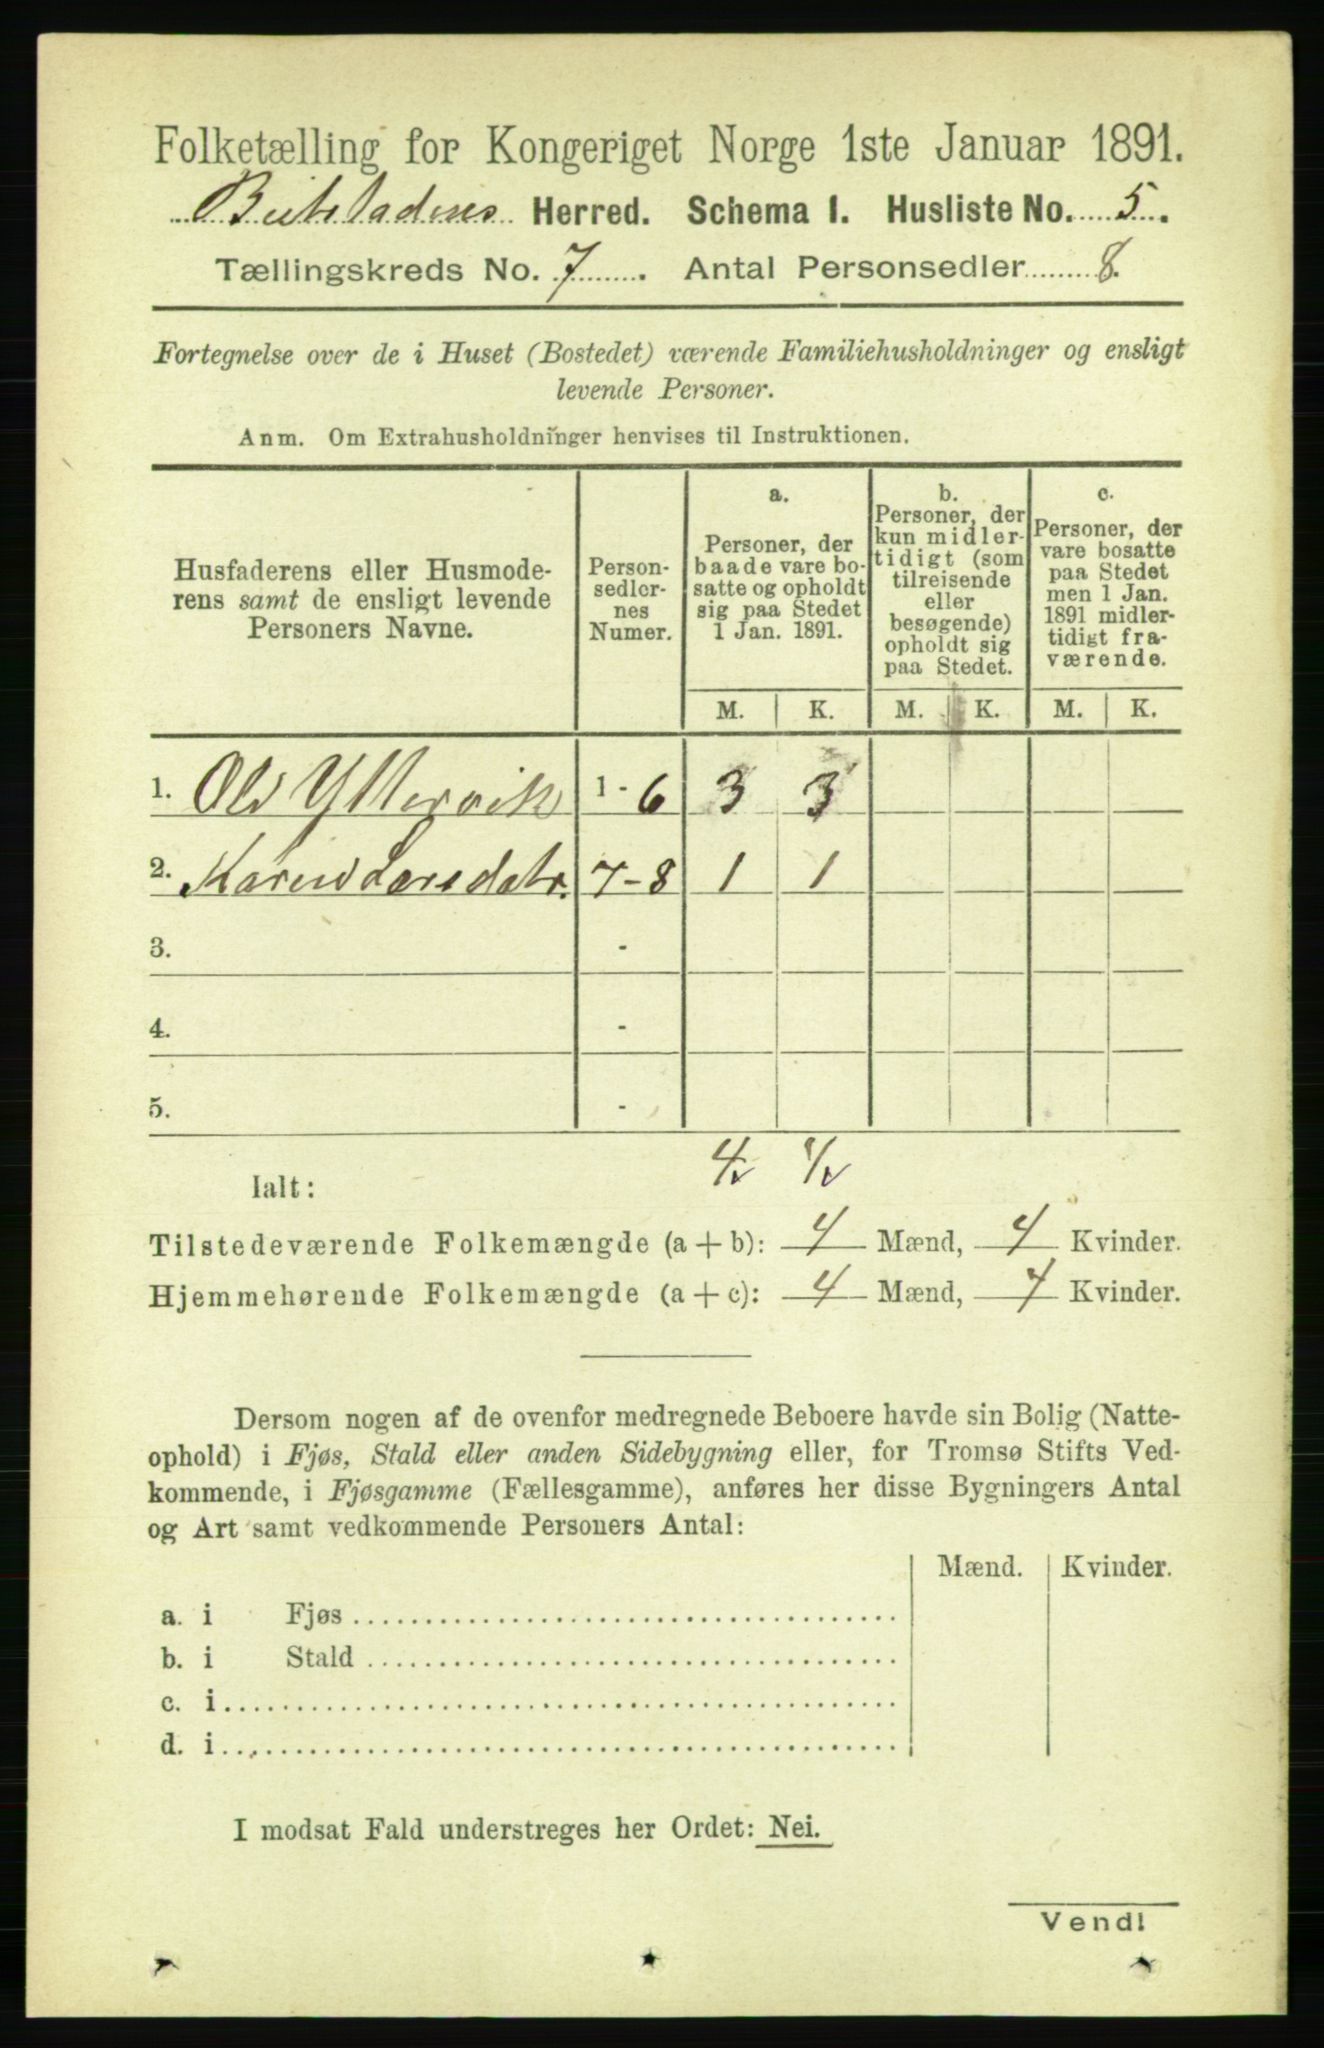 Folketælling for Kongeriget Norge 1ste Januar 1891.
Beitstadens Herred. Schema 1. Husliste No. 5.
Tællingskreds No. 7. Antal Personsedler 8.
Fortegnelse over de i Huset (Bostedet) værende Familiehusholdninger og ensligt
levende Personer.
Anm. Om Extrahusholdninger henvises til Instruktionen.
Husfaderens eller Husmode-
rens samt de ensligt levende
Personers Navne.
Person-
sedler-
nes
Numer.
a.
Personer, der
baade vare bo-
satte og opholdt
sig paa Stedet
1 Jan. 1891.
b.
Personer, der
kun midler-
tidigt (som
tilreisende
eller
besøgende)
opholdt sig
paa Stedet.
c.
Personer, der
vare bosatte
paa Stedet
men 1 Jan.
1891 midler-
tidigt fra-
værende.
M. K. M. K. M. K.
1. Ole Yttervik 1 - 6 3 3
2. Karen Larsdatr. 7 - 8 1 1
3. -
4. -
5. -
Ialt: 4 4
Tilstedeværende Folkemængde (a + b): 4 Mænd, 4 Kvinder.
Hjemmehørende Folkemængde (a + c): 4 Mænd, 4 Kvinder.
Dersom nogen af de ovenfor medregnede Beboere havde sin Bolig (Natte-
ophold) i Fjøs, Stald eller anden Sidebygning eller, for Tromsø Stifts Ved-
kommende, i Fjøsgamme (Fællesgamme), anføres her disse Bygningers Antal
og Art samt vedkommende Personers Antal:
Mænd. Kvinder.
a. i Fjøs
b. i Stald
c. i
d. i
I modsat Fald understreges her Ordet: Nei.
Vend!